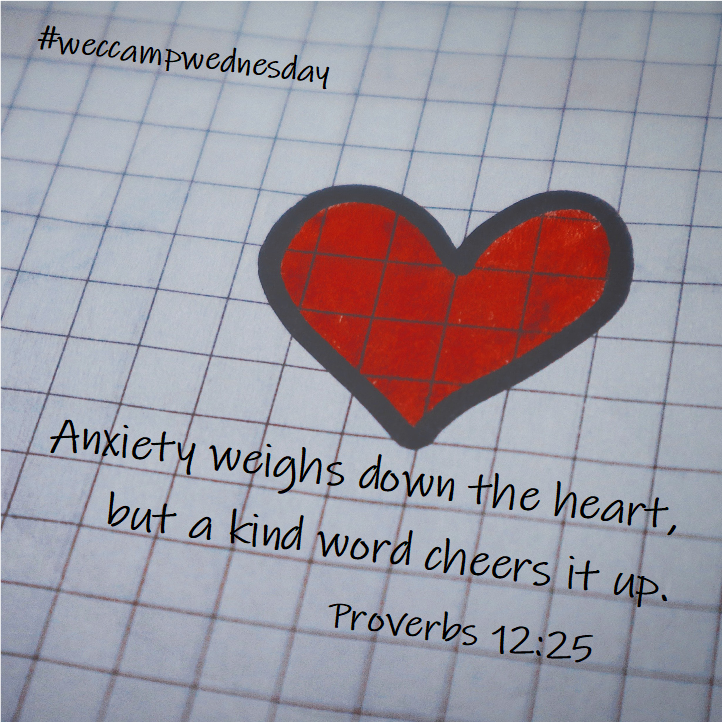 #weccampwednesday
Anxiety weighs down the heart,
but a kind word cheers it up.
Proverbs 12:25